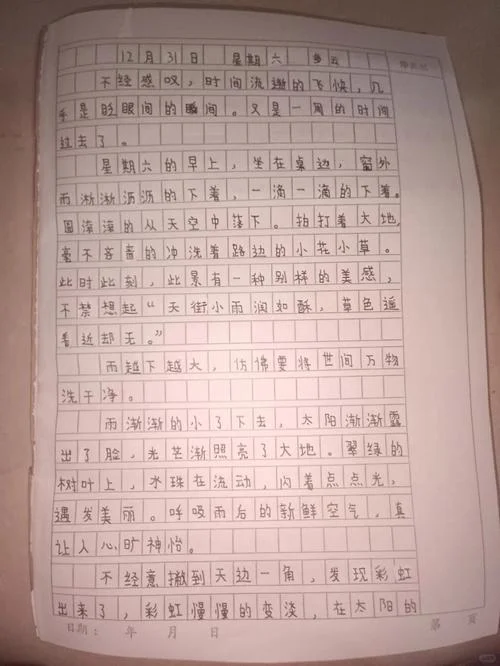 12月31日 星期六 多云
不经感叹，时间流逝的飞快，几
乎是眨眼间的瞬间。又是一周的时间
过去了。
星期六的早上，坐在桌边，窗外
雨淅淅沥沥的下着，一滴一滴的下着。
圆滚滚的从天空中落下。拍打着大地，
毫不吝啬的冲洗着路边的小花小草。
此时此刻，此景有一种别样的美感，
不禁想起“天街小雨润如酥，草色遥
看近却无。”
雨越下越大，仿佛要将世间万物
洗干净。
雨渐渐的小了下去，太阳渐渐露
出了脸，光芒渐照亮了大地。翠绿的
树叶上，水珠在流动，闪着点点光，
遇发美丽。呼吸雨后的新鲜空气，真
让人心旷神怡。
不经意撇到天边一角，发现彩虹
出来了，彩虹慢慢的变淡，在太阳的
日期： 年 月 日 页